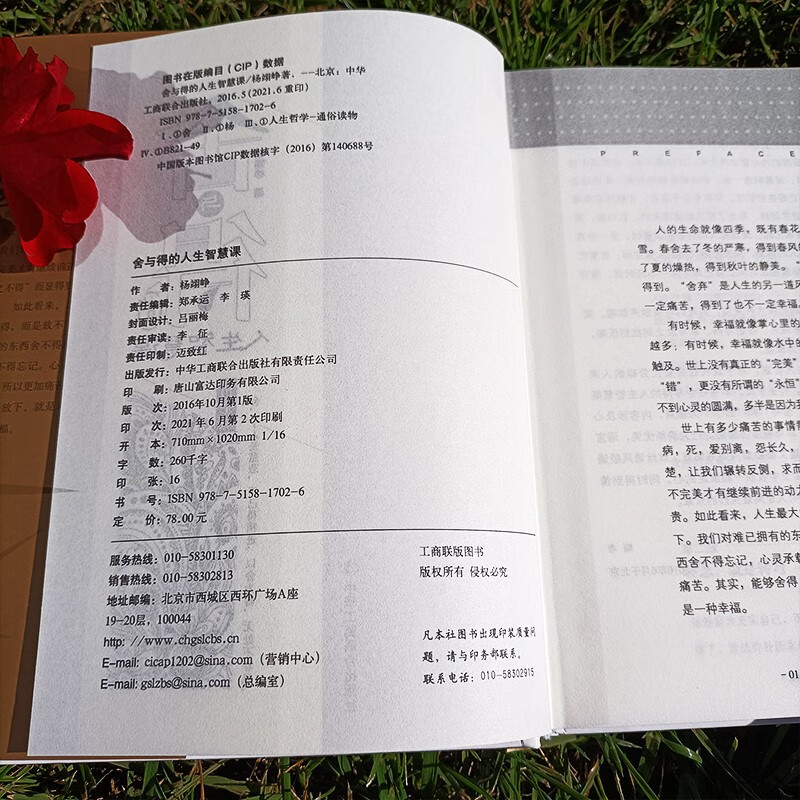 图书在版编目（CIP）数据
舍与得的人生智慧课/杨翊峥著. --北京：中华
工商联合出版社，2016.5（2021.6重印）
ISBN 978-7-5158-1702-6
Ⅰ.①舍 Ⅱ.①杨 Ⅲ.①人生哲学-通俗读物
Ⅳ.①B821-49
中国版本图书馆CIP数据核字（2016）第140688号
舍与得的人生智慧课
作 者：杨翊峥
责任编辑：郑承运 李 瑛
封面设计：吕丽梅
责任审读：李 征
责任印制：迈致红
出版发行：中华工商联合出版社有限责任公司
印 刷：唐山富达印务有限公司
版 次：2016年10月第1版
印 次：2021年6月第2次印刷
开 本：710mm×1020mm 1/16
字 数：260千字
印 张：16
书 号：ISBN 978-7-5158-1702-6
定 价：78.00元
服务热线：010-58301130
销售热线：010-58302813
地址邮编：北京市西城区西环广场A座
19-20层，100044
http：//www.chgslcbs.cn
E-mail：cicap1202@sina.com（营销中心）
E-mail：gslzbs@sina.com（总编室）
工商联版图书
版权所有 侵权必究
凡本社图书出现印装质量问
题，请与印务部联系。
联系电话：010-58302915
PREFACE
人的生命就像四季，既有春花
雪。春舍去了冬的严寒，得到春风
了夏的燥热，得到秋叶的静美。“
得到。“舍弃”是人生的另一道风
一定痛苦，得到了也不一定幸福。
有时候，幸福就像掌心里的
越多；有时候，幸福就像水中的
触及。世上没有真正的“完美”
“错”，更没有所谓的“永恒”
不到心灵的圆满，多半是因为我
世上有多少痛苦的事情
病，死，爱别离，怨长久，
楚，让我们辗转反侧，求而
不完美才有继续前进的动力
贵。如此看来，人生最大
下。我们对难已拥有的东
西舍不得忘记，心灵承载
痛苦。其实，能够舍得
是一种幸福。
-01